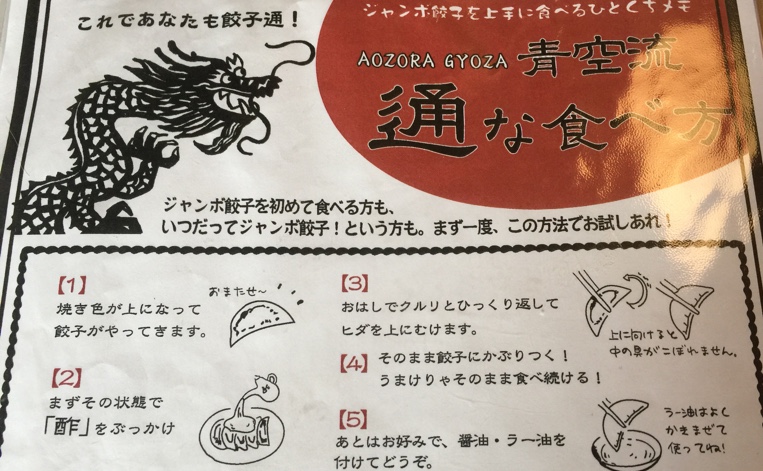 これであなたも餃子通！
ジャンボ餃子を上手に食べるひとくちメモ
AOZORA GYOZA 青空流
通な食べ方
ジャンボ餃子を初めて食べる方も、
いつだってジャンボ餃子！という方も。まず一度、この方法でお試しあれ！
【1】
焼き色が上になって
餃子がやってきます。
おまたせ〜
【2】
まずその状態で
「酢」をぶっかけ
【3】
おはしでクルリとひっくり返して
ヒダを上にむけます。
上に向けると
中の具がこぼれません。
【4】 そのまま餃子にかぶりつく！
うまけりゃそのまま食べ続ける！
【5】
あとはお好みで、醤油・ラー油を
付けてどうぞ。
ラー油はよく
かきまぜて
使ってね！